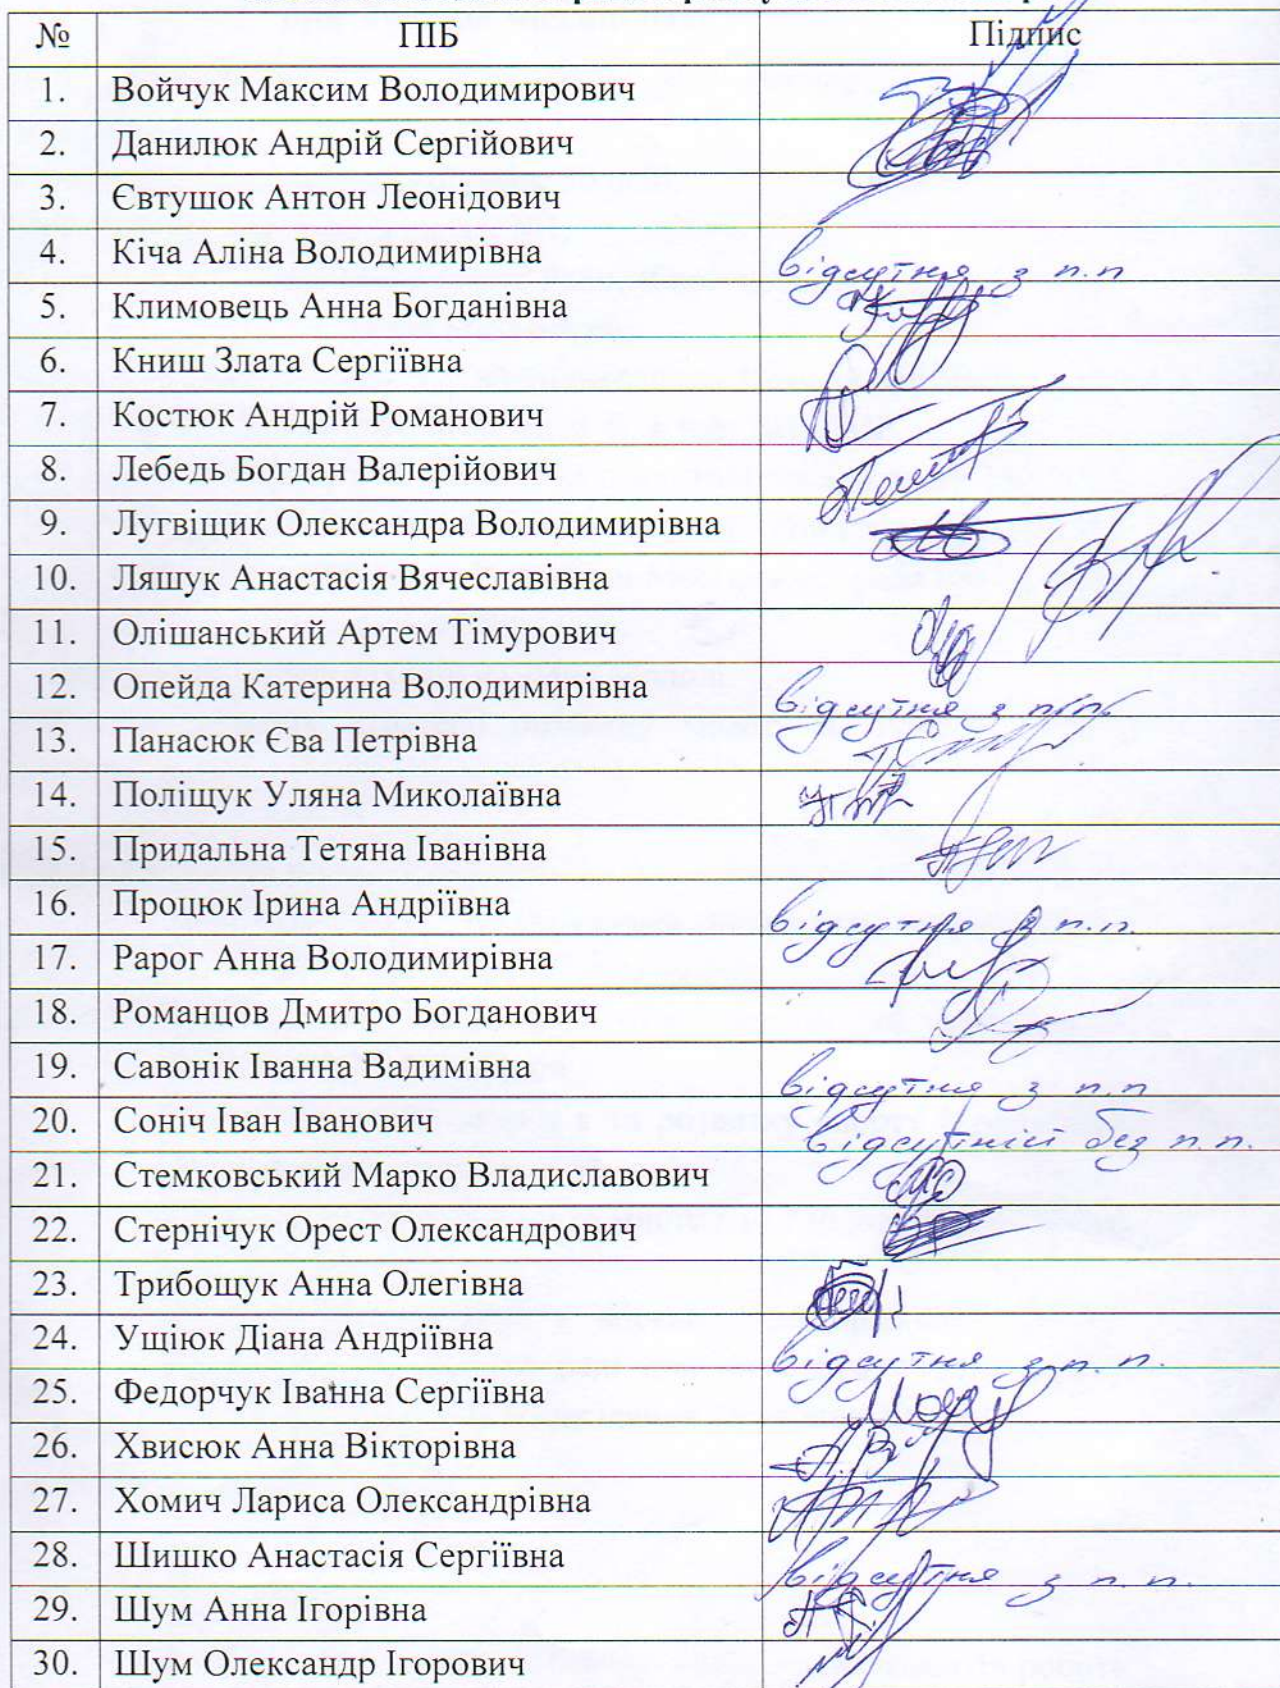 № ПІБ Підпис
1. Войчук Максим Володимирович
2. Данилюк Андрій Сергійович
3. Євтушок Антон Леонідович
4. Кіча Аліна Володимирівна відсутня з п.п
5. Климовець Анна Богданівна
6. Книш Злата Сергіївна
7. Костюк Андрій Романович
8. Лебедь Богдан Валерійович
9. Лугвіщик Олександра Володимирівна
10. Ляшук Анастасія Вячеславівна
11. Олішанський Артем Тімурович
12. Опейда Катерина Володимирівна відсутня з п.п.
13. Панасюк Єва Петрівна
14. Поліщук Уляна Миколаївна
15. Придальна Тетяна Іванівна
16. Процюк Ірина Андріївна відсутня з п.п.
17. Рарог Анна Володимирівна
18. Романцов Дмитро Богданович
19. Савонік Іванна Вадимівна відсутня з п.п
20. Соніч Іван Іванович відсутній без п.п.
21. Стемковський Марко Владиславович
22. Стернічук Орест Олександрович
23. Трибощук Анна Олегівна
24. Ущіюк Діана Андріївна відсутня з п.п.
25. Федорчук Іванна Сергіївна
26. Хвисюк Анна Вікторівна
27. Хомич Лариса Олександрівна
28. Шишко Анастасія Сергіївна відсутня з п.п.
29. Шум Анна Ігорівна
30. Шум Олександр Ігорович